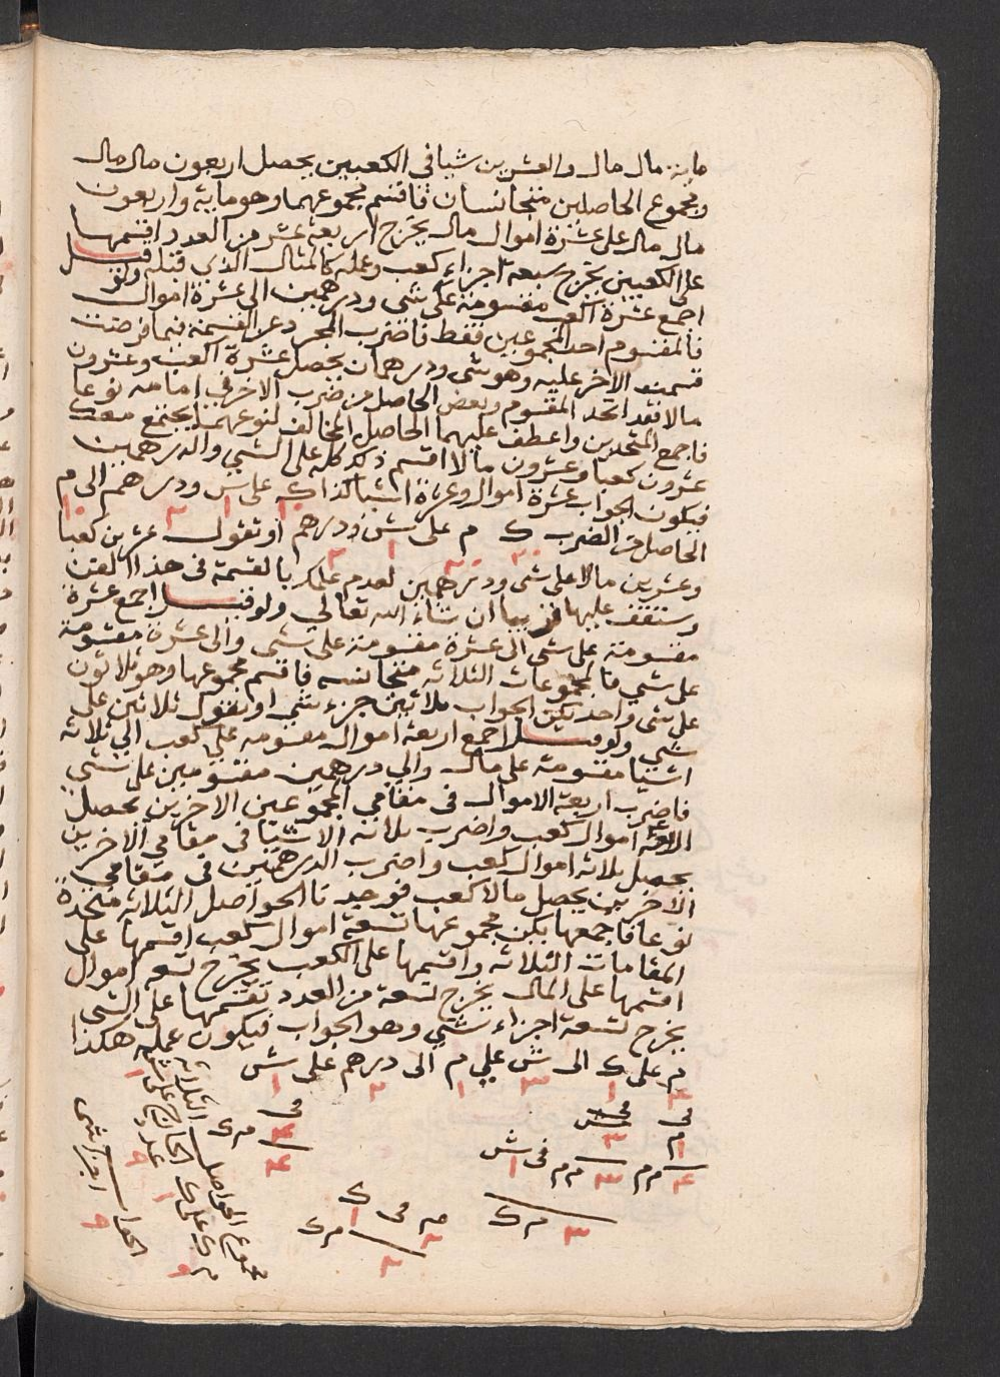 ماىة مال مال والعشرين شيا فى الكعبين يحصل اربعون مال مال
ومجموع الحاصلين متجانسان فاقسم مجموعهما وهو ماية واربعون
مال مال على عشرة اموال مال يخرج اربعة عشر من العدد اقسمها
على الكعبين يخرج سبعة اجزاء كعب وعمله كالمثال الذي قبله ولو قيل
اجمع عشرة اكعب مقسومة على شى ودرهمين الى عشرة اموال
فالمقسوم احد المجموعين فقط فاضرب المجرد عن القسمة فيما فرضت
قسمة الاخر عليه وهو شى ودرهمان يحصل عشرة اكعب وعشرون
مالا فقد اتحد المقسوم وبعض الحاصل من ضرب الاخر في امامه نوعا
فاجمع المتحدين واعطف عليهما الحاصل المخالف لنوعهما يجتمع معك
عشرون كعبا وعشرون مالا اقسم ذلك كله على الشي والدرهمين
فيكون الجواب عشرة اموال وعشرة اشيا كذا ك على ش ودرهم الى م
الحاصل من الضرب ك م على ش ودرهم او تقول عشرين كعبا
وعشرين مالا على شى ودرهمين لعدم علمك بالقسمة فى هذا الفن
وستقف عليها قريبا ان شاء الله تعالي ولو قيل اجمع عشرة
مقسومة على شى الى عشرة مقسومة على شى والى عشرة مقسومة
على شي فالمجموعات الثلاثة متجانسه فاقسم مجموعها وهو ثلاثون
على شى واحد يكن الجواب ثلاثين جزء شي او تقول ثلاثين على
شي ولو قيل اجمع اربعة اموال مقسومه على كعب الي ثلاثة
اشيا مقسومة على مال والي درهمين مقسومين على شي
فاضرب اربعة الاموال فى مقامي المجموعين الاخرين يحصل
اربعة اموال كعب واضرب ثلاثة الاشيا فى مقامي الاخرين
يحصل ثلاثة اموال كعب واضرب الدرهمين فى مقامي
الاخرين يحصل مالا كعب فوجدنا الحواصل الثلاثه متحدة
نوعا فاجمعها يكن مجموعها تسعة اموال كعب اقسمها على
المقامات الثلاثه واقسمها على الكعب يخرج تسعة اموال
اقسمها على المال يخرج تسعة من العدد تقسمها على الشى
يخرج تسعة اجزاء شي وهو الجواب فيكون عمله هكذا
م على ك الى ش علي م الى درهم على ش
٤ ١ ٣ ١ ٢ ١
مجموع الحواصل الثلاثة
م ك على ك الخارج على ش
الجواب اجزاء شى